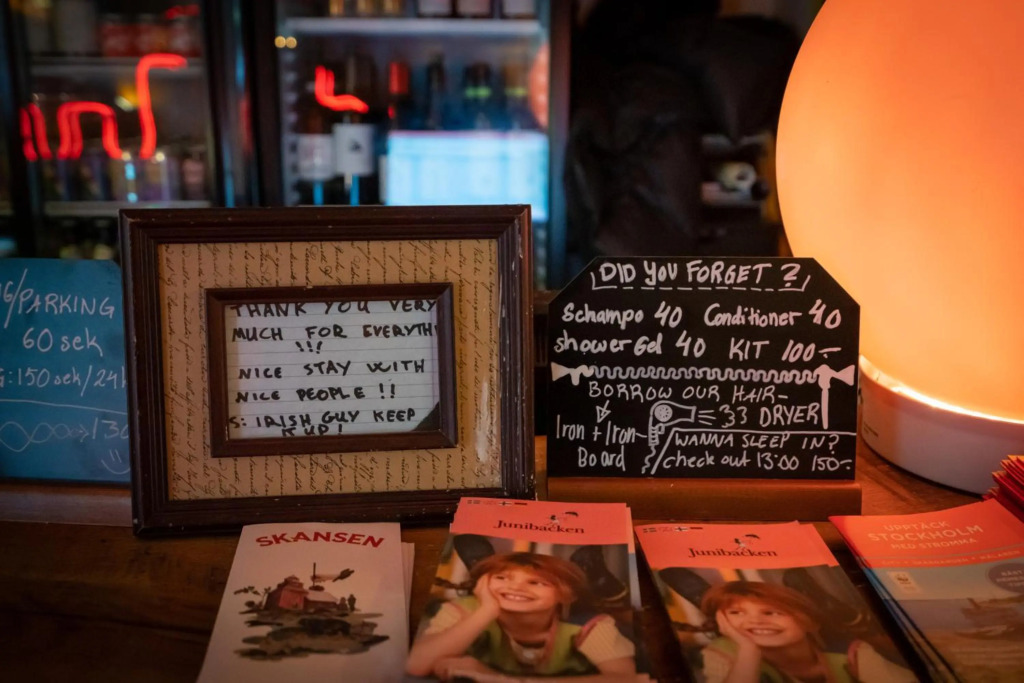 /PARKING
60 sek
: 150 sek/24h
THANK YOU VERY
MUCH FOR EVERYTH
!!!
NICE STAY WITH
NICE PEOPLE !!
S: IRISH GUY KEEP
IT UP!
DID YOU FORGET ?
Schampo 40 Conditioner 40
shower Gel 40 KIT 100:-
BORROW OUR HAIR-
DRYER
Iron + Iron-
Board
WANNA SLEEP IN?
check out 13:00 150:-
SKANSEN
Junibacken
Junibacken
UPPTÄCK
STOCKHOLM
MED STROMMA